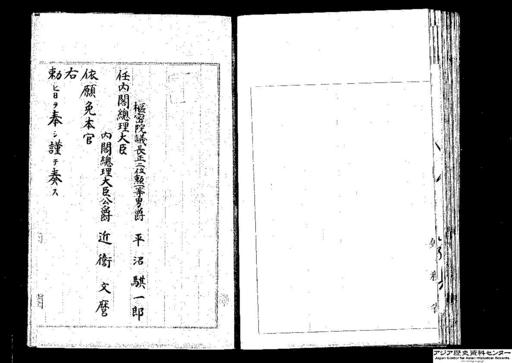 樞密院議長正二位勲一等男爵 平沼騏一郎
任内閣總理大臣
内閣總理大臣公爵 近衞文麿
依願免本官
右
勅旨ヲ奉シ謹テ奏ス
アジア歴史資料センター
Japan Center for Asian Historical Records